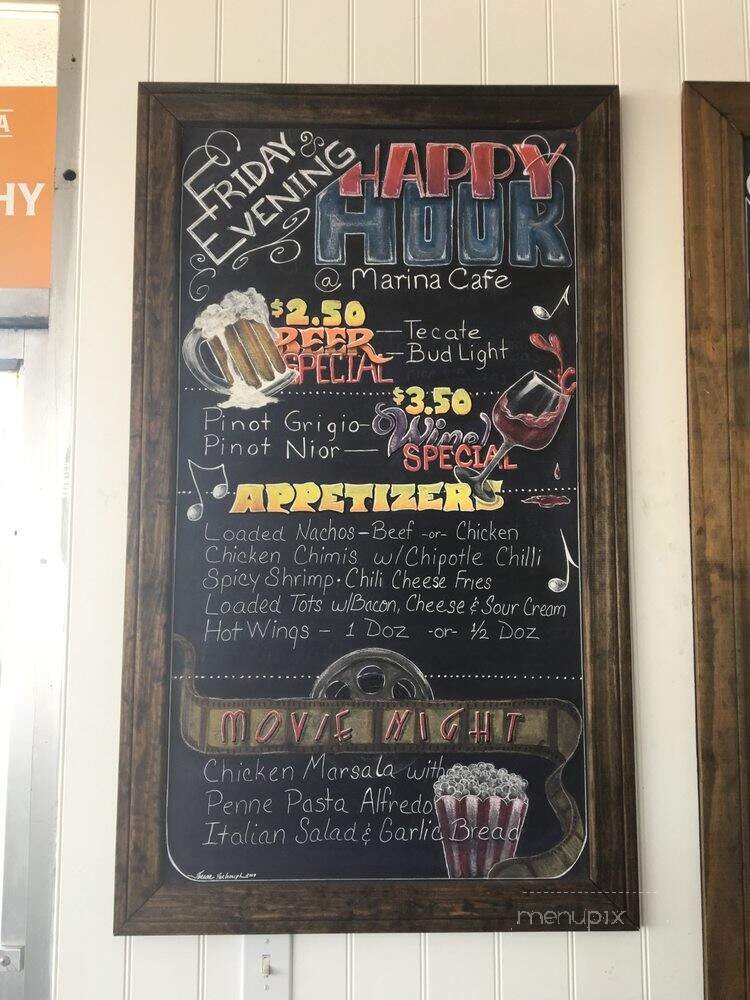 A
HY
FRIDAY
EVENING
HAPPY
HOUR
@ Marina Cafe
$2.50
BEER
SPECIAL
Tecate
Bud Light
$3.50
Wine
SPECIAL
Pinot Grigio
Pinot Nior
APPETIZERS
Loaded Nachos - Beef -or- Chicken
Chicken Chimis w/Chipotle Chilli
Spicy Shrimp · Chili Cheese Fries
Loaded Tots w/Bacon, Cheese & Sour Cream
Hot Wings - 1 Doz -or- ½ Doz
MOVIE NIGHT
Chicken Marsala with
Penne Pasta Alfredo
Italian Salad & Garlic Bread
menupix